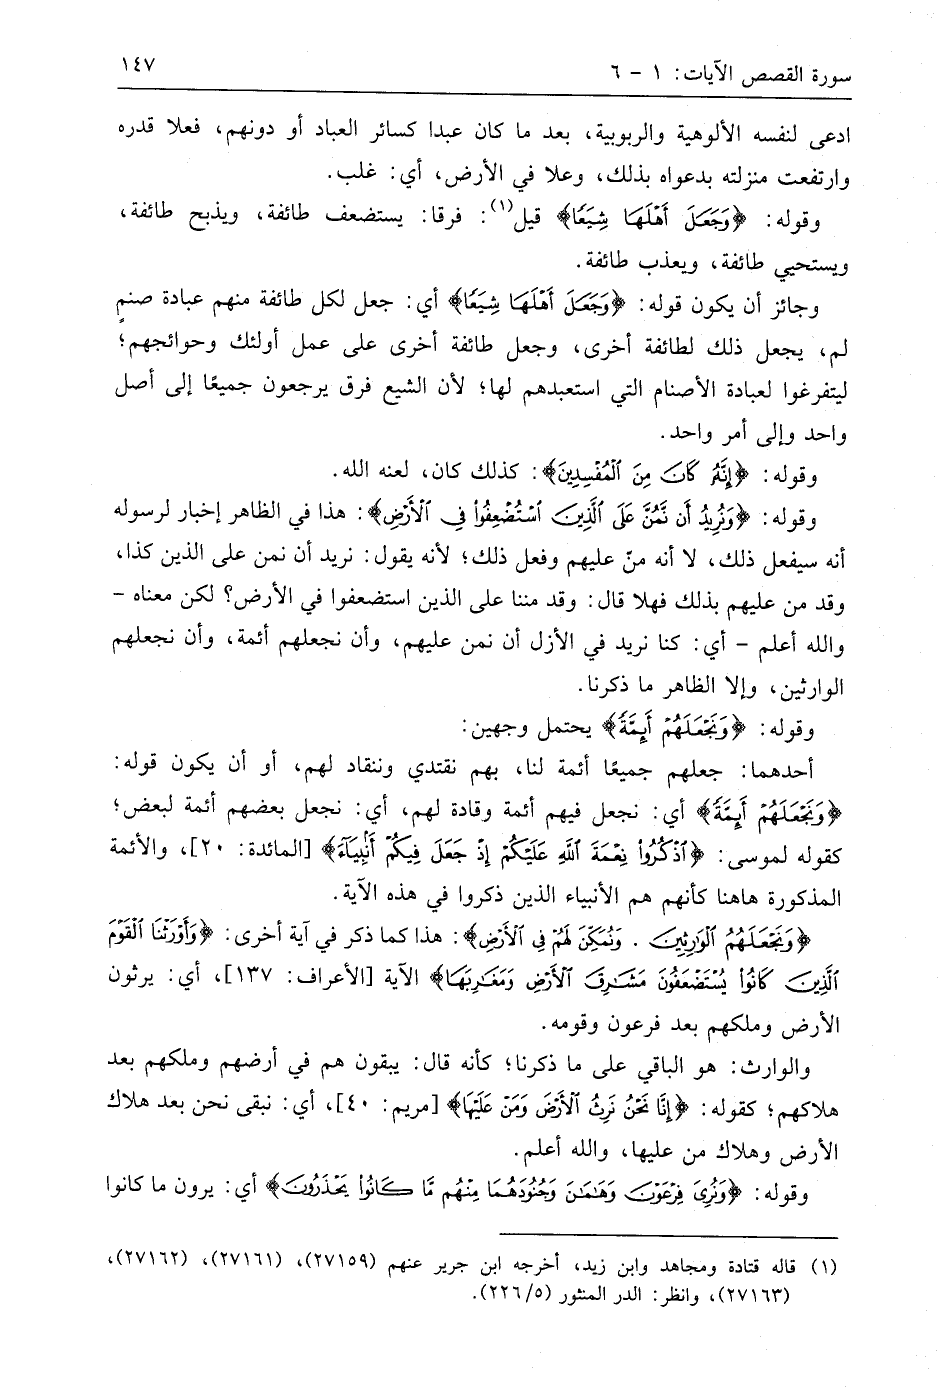 سورة القصص الآيات: ١ - ٦
١٤٧
ادعى لنفسه الألوهية والربوبية، بعد ما كان عبدا كسائر العباد أو دونهم، فعلا قدره
وارتفعت منزلته بدعواه بذلك، وعلا في الأرض، أي: غلب.
وقوله: ﴿وَجَعَلَ أَهْلَهَا شِيَعًا﴾ قيل(١): فرقا: يستضعف طائفة، ويذبح طائفة،
ويستحيي طائفة، ويعذب طائفة.
وجائز أن يكون قوله: ﴿وَجَعَلَ أَهْلَهَا شِيَعًا﴾ أي: جعل لكل طائفة منهم عبادة صنمٍ
لم، يجعل ذلك لطائفة أخرى، وجعل طائفة أخرى على عمل أولئك وحوائجهم؛
ليتفرغوا لعبادة الأصنام التي استعبدهم لها؛ لأن الشيع فرق يرجعون جميعًا إلى أصل
واحد وإلى أمر واحد.
وقوله: ﴿إِنَّهُ كَانَ مِنَ ٱلْمُفْسِدِينَ﴾: كذلك كان، لعنه الله.
وقوله: ﴿وَنُرِيدُ أَن نَّمُنَّ عَلَى ٱلَّذِينَ ٱسْتُضْعِفُوا۟ فِى ٱلْأَرْضِ﴾: هذا في الظاهر إخبار لرسوله
أنه سيفعل ذلك، لا أنه منّ عليهم وفعل ذلك؛ لأنه يقول: نريد أن نمن على الذين كذا،
وقد من عليهم بذلك فهلا قال: وقد مننا على الذين استضعفوا في الأرض؟ لكن معناه -
والله أعلم - أي: كنا نريد في الأزل أن نمن عليهم، وأن نجعلهم أئمة، وأن نجعلهم
الوارثين، وإلا الظاهر ما ذكرنا.
وقوله: ﴿وَنَجْعَلَهُمْ أَئِمَّةً﴾ يحتمل وجهين:
أحدهما: جعلهم جميعًا أئمة لنا، بهم نقتدي وننقاد لهم، أو أن يكون قوله:
﴿وَنَجْعَلَهُمْ أَئِمَّةً﴾ أي: نجعل فيهم أئمة وقادة لهم، أي: نجعل بعضهم أئمة لبعض؛
كقوله لموسى: ﴿ٱذْكُرُوا۟ نِعْمَةَ ٱللَّهِ عَلَيْكُمْ إِذْ جَعَلَ فِيكُمْ أَنۢبِيَآءَ﴾ [المائدة: ٢٠]، والأئمة
المذكورة هاهنا كأنهم هم الأنبياء الذين ذكروا في هذه الآية.
﴿وَنَجْعَلَهُمُ ٱلْوَٰرِثِينَ . وَنُمَكِّنَ لَهُمْ فِى ٱلْأَرْضِ﴾: هذا كما ذكر في آية أخرى: ﴿وَأَوْرَثْنَا ٱلْقَوْمَ
ٱلَّذِينَ كَانُوا۟ يُسْتَضْعَفُونَ مَشَٰرِقَ ٱلْأَرْضِ وَمَغَٰرِبَهَا﴾ الآية [الأعراف: ١٣٧]، أي: يرثون
الأرض وملكهم بعد فرعون وقومه.
والوارث: هو الباقي على ما ذكرنا؛ كأنه قال: يبقون هم في أرضهم وملكهم بعد
هلاكهم؛ كقوله: ﴿إِنَّا نَحْنُ نَرِثُ ٱلْأَرْضَ وَمَنْ عَلَيْهَا﴾ [مريم: ٤٠]، أي: نبقى نحن بعد هلاك
الأرض وهلاك من عليها، والله أعلم.
وقوله: ﴿وَنُرِىَ فِرْعَوْنَ وَهَٰمَٰنَ وَجُنُودَهُمَا مِنْهُم مَّا كَانُوا۟ يَحْذَرُونَ﴾ أي: يرون ما كانوا
(١) قاله قتادة ومجاهد وابن زيد، أخرجه ابن جرير عنهم (٢٧١٥٩)، (٢٧١٦١)، (٢٧١٦٢)،
(٢٧١٦٣)، وانظر: الدر المنثور (٢٢٦/٥).